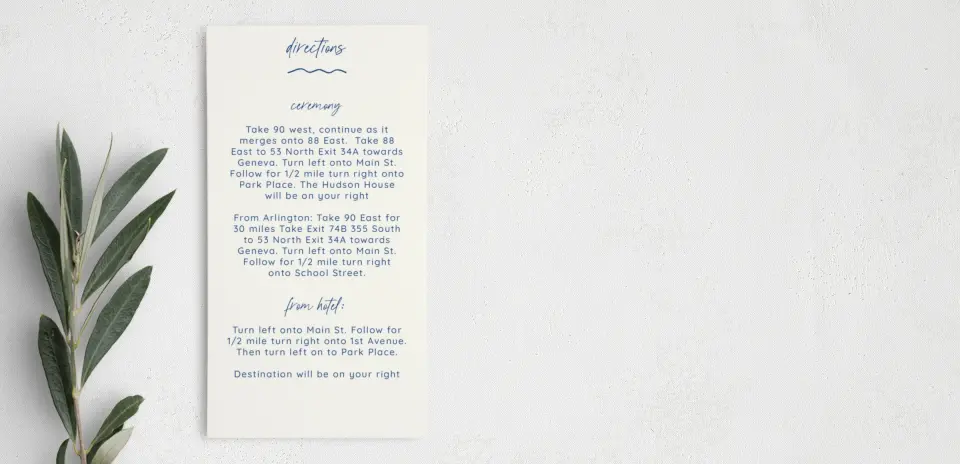 directions
ceremony
Take 90 west, continue as it
merges onto 88 East. Take 88
East to 53 North Exit 34A towards
Geneva. Turn left onto Main St.
Follow for 1/2 mile turn right onto
Park Place. The Hudson House
will be on your right
From Arlington: Take 90 East for
30 miles Take Exit 74B 355 South
to 53 North Exit 34A towards
Geneva. Turn left onto Main St.
Follow for 1/2 mile turn right
onto School Street.
from hotel:
Turn left onto Main St. Follow for
1/2 mile turn right onto 1st Avenue.
Then turn left on to Park Place.
Destination will be on your right